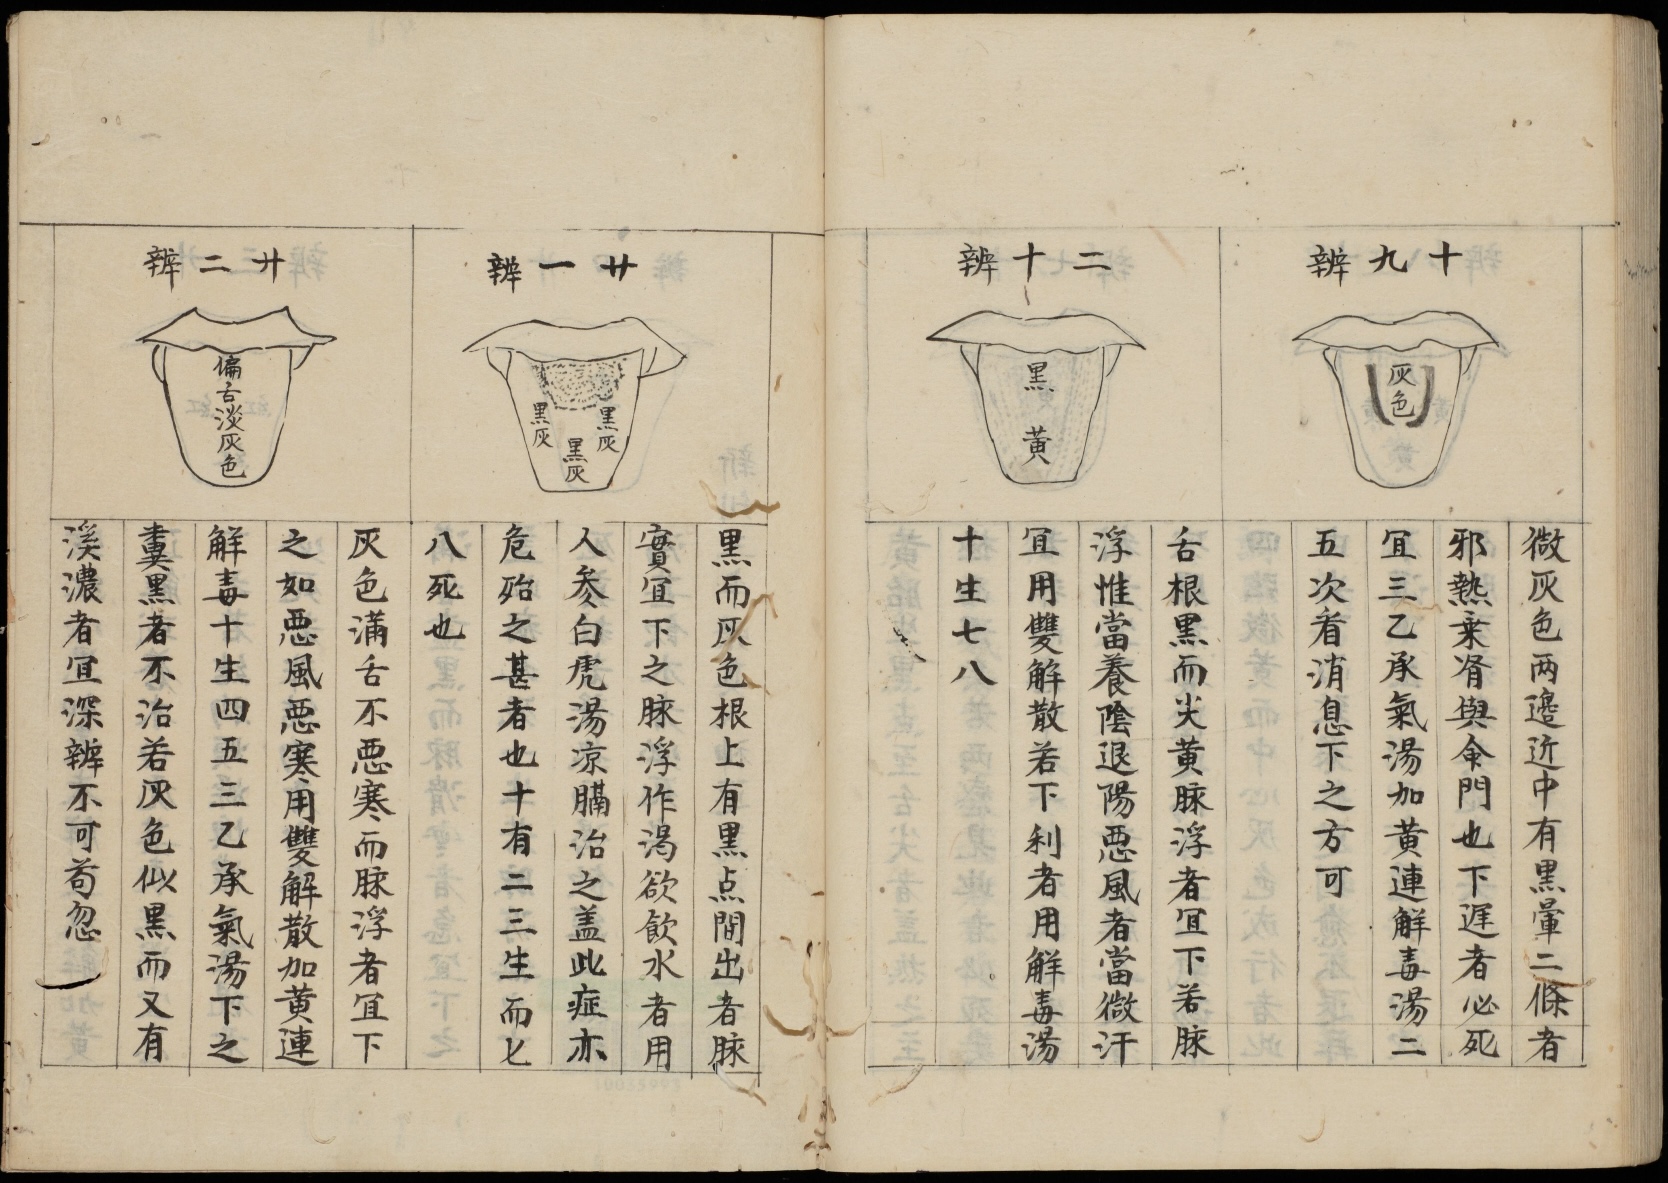 十九辨
灰色
微灰色两邉近中有黒暈二條者
邪熱乗肾與命門也下遅者必死
冝三乙承氣湯加黄連解毒湯二
五次看消息下之方可
二十辨
黒
黄
舌根黒而尖黄脉浮者冝下若脉
浮惟當養陰退陽惡風者當微汗
冝用雙解散若下利者用解毒湯
十生七八
廿一辨
黒灰
黒灰
黒灰
黒而灰色根上有黒点間出者脉
實冝下之脉浮作渴欲飲水者用
人参白虎湯凉膈治之盖此症亦
危殆之甚者也十有二三生而七
八死也
廿二辨
偏舌淡灰色
灰色滿舌不惡寒而脉浮者冝下
之如惡風惡寒用雙解散加黄連
解毒十生四五三乙承氣湯下之
糞黒者不治若灰色似黒而又有
溪濃者冝深辨不可苟忽